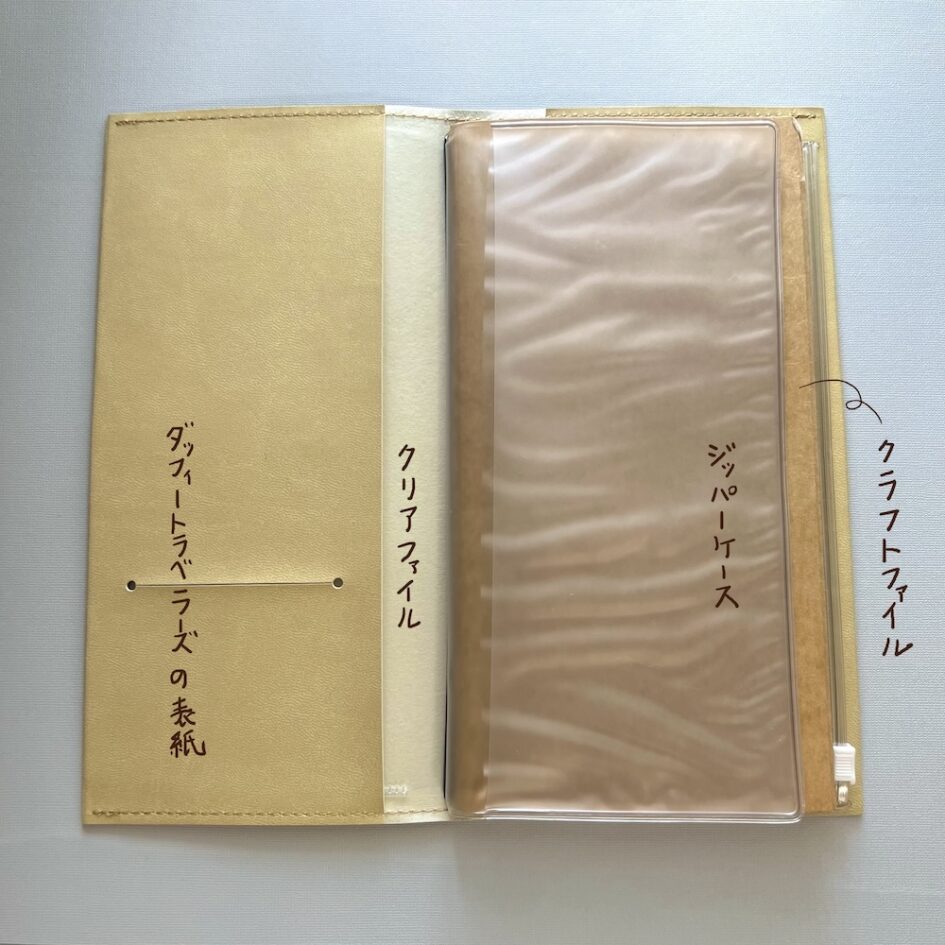 ダッフィートラベラーズの表紙
クリアファイル
ジッパーケース
クラフトファイル